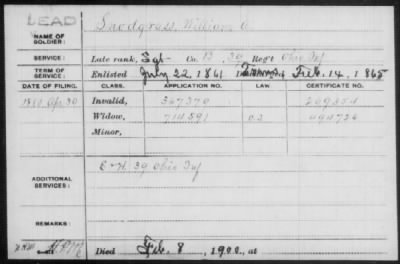 DEAD
NAME OF SOLDIER: Snodgrass, William
SERVICE: Late rank, Sgt Co. B, 39 Reg't Ohio Inf
TERM OF SERVICE: Enlisted July 22, 1861 Feb. 14, 1865
DATE OF FILING. CLASS. APPLICATION NO. LAW CERTIFICATE NO.
1880 Apr 30 Invalid, 367370
Widow, 714,591 494726
Minor,
ADDITIONAL SERVICES: E & H. 39 Ohio Inf
REMARKS:
Died Feb. 8, 1900, at